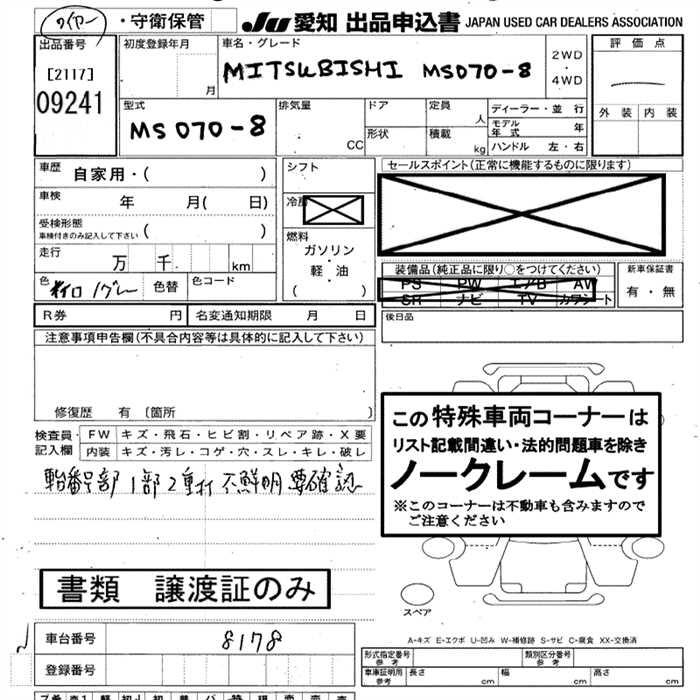 ・守衛保管 JU 愛知 出品申込書 JAPAN USED CAR DEALERS ASSOCIATION
出品番号
[2117]
09241
初度登録年月
月
車名・グレード
MITSUBISHI MS070-8
2WD
・
4WD
評価点
外装 内装
型式
MS070-8
排気量
CC
ドア
形状
定員
人
積載
kg
ディーラー・並行
モデル年式 年
ハンドル 左・右
車歴 自家用・( )
車検 年 月( 日)
受検形態
車検付きのみ記入して下さい ( )
走行 万 千 km
色 キイロ/グレー 色替 色コード
シフト
冷房
燃料
ガソリン
・
軽・油
( )
セールスポイント(正常に機能するものに限ります)
装備品(純正品に限り○をつけてください)
PS PW エアB AW
SR ナビ TV カワシート
新車保証書
有・無
R券 円 名変通知期限 月 日
後日品
注意事項申告欄(不具合内容等は具体的に記入して下さい)
修復歴 有 〔箇所 〕
検査員記入欄
FW キズ・飛石・ヒビ割・リペア跡・X要
内装 キズ・汚レ・コゲ・穴・スレ・キレ・破レ
車台番号部1部2重打 不鮮明 要確認
この特殊車両コーナーは
リスト記載間違い・法的問題車を除き
ノークレームです
※このコーナーは不動車も含みますので
ご注意ください
書類 譲渡証のみ
スペア
車台番号 8178
登録番号
A-キズ E-エクボ U-凹み W-補修跡 S-サビ C-腐食 XX-交換済
形式指定番号
参考
類別区分番号
参考
車庫証明用
参考
長さ cm 幅 cm 高さ cm